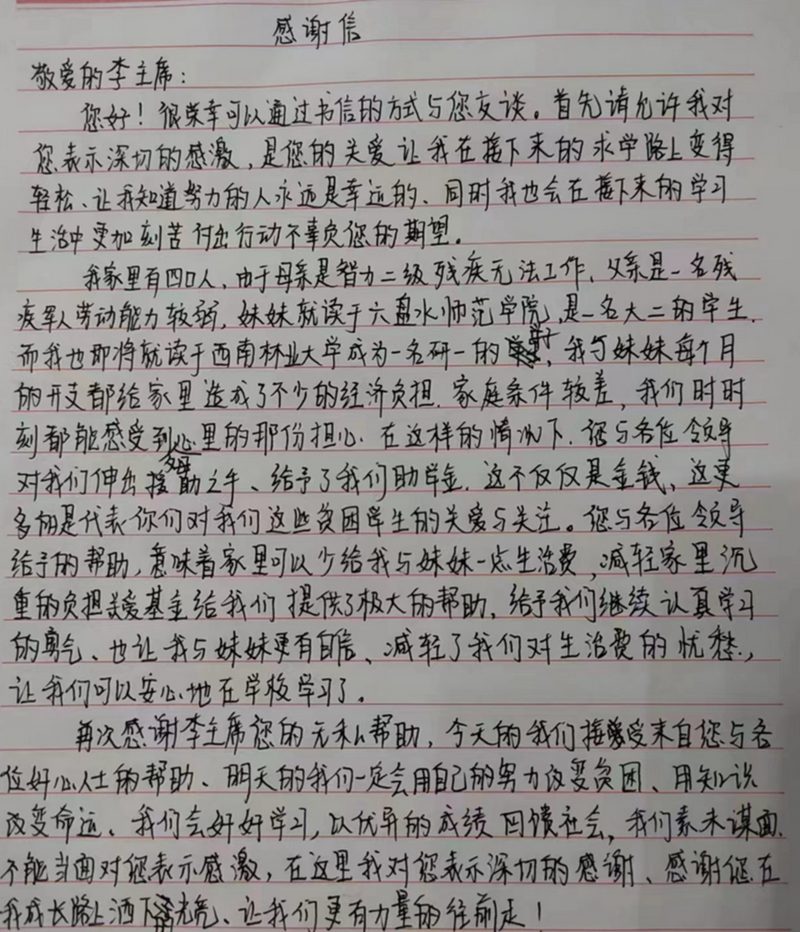 感谢信
敬爱的李主席：
您好！很荣幸可以通过书信的方式与您友谈。首先请允许我对
您表示深切的感激，是您的关爱让我在接下来的求学路上变得
轻松、让我知道努力的人永远是幸运的、同时我也会在接下来的学习
生活中更加刻苦付出行动不辜负您的期望。
我家里有四口人，由于母亲是智力二级残疾无法工作，父亲是一名残
疾军人劳动能力较弱，妹妹就读于六盘水师范学院，是一名大二的学生.
而我也即将就读于西南林业大学成为一名研一的，我与妹妹每个月
的开支都给家里造成了不少的经济负担.家庭条件较差，我们时时
刻都能感受到心里的那份担心.在这样的情况下.您与各位领导
对我们伸出援助之手、给予了我们助学金.这不仅仅是金钱、这更
多的是代表你们对我们这些贫困学生的关爱与关注。您与各位领导
给予的帮助，意味着家里可以少给我与妹妹一点生活费，减轻家里沉
重的负担关爱基金给我们提供了极大的帮助，给予我们继续认真学习
的勇气、也让我与妹妹更有自信、减轻了我们对生活费的忧愁.，
让我们可以安心地在学校学习了。
再次感谢李主席您的无私帮助，今天的我们接受来自您与各
位好心人士的帮助、明天的我们一定会用自己的努力改变贫困、用知识
改变命运、我们会好好学习，以优异的成绩回馈社会，我们素未谋面.
不能当面对您表示感激，在这里我对您表示深切的感谢、感谢您在
我成长路上洒下光亮、让我们更有力量的往前走！